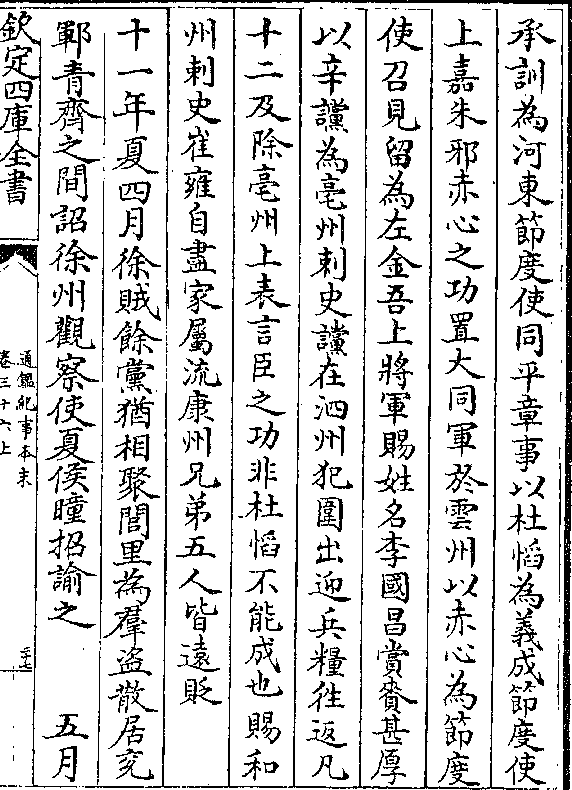 承訓為河東節度使同平章事以杜慆為義成節度使
上嘉朱邪赤心之功置大同軍於雲州以赤心為節度
使召見留為左金吾上將軍賜姓名李國昌賞賚甚厚
以辛讜為亳州刺史讜在泗州犯圍出迎兵糧往返凡
十二及除亳州上表言臣之功非杜慆不能成也賜和
州刺史崔雍自盡家屬流康州兄弟五人皆遠貶
十一年夏四月徐賊餘黨猶相聚閭里為羣盗散居兖
鄆青齊之間詔徐州觀察使夏侯曈招諭之　五月
欽定四庫全書
通鑑紀事本末
卷三十六上
三十七